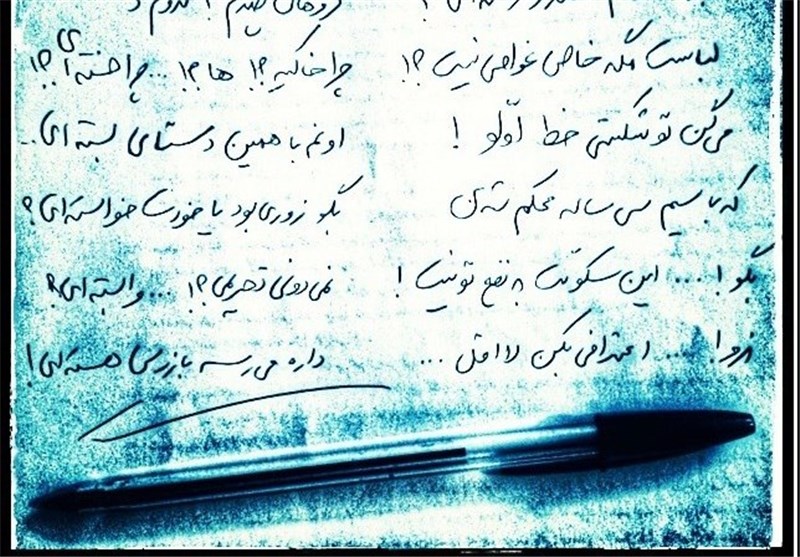 لباست مگه خاص غواصی نیست؟! چرا خاکیه؟! ها؟! ... چرا خسته ای؟!
می گن تو شکستی خط اولو ! اونم با همین دستای بسته ای..
که با سیم سی ساله محکم شدن بگو زوری بود یا خودت خواسته ای؟
بگو! ... این سکوتت به نفع تو نیست ! نمی دونی تحریمی؟! ... وابسته ای؟
زود! ... اعترافی بکن لااقل ... داره می رسه بازرس هسته ای!